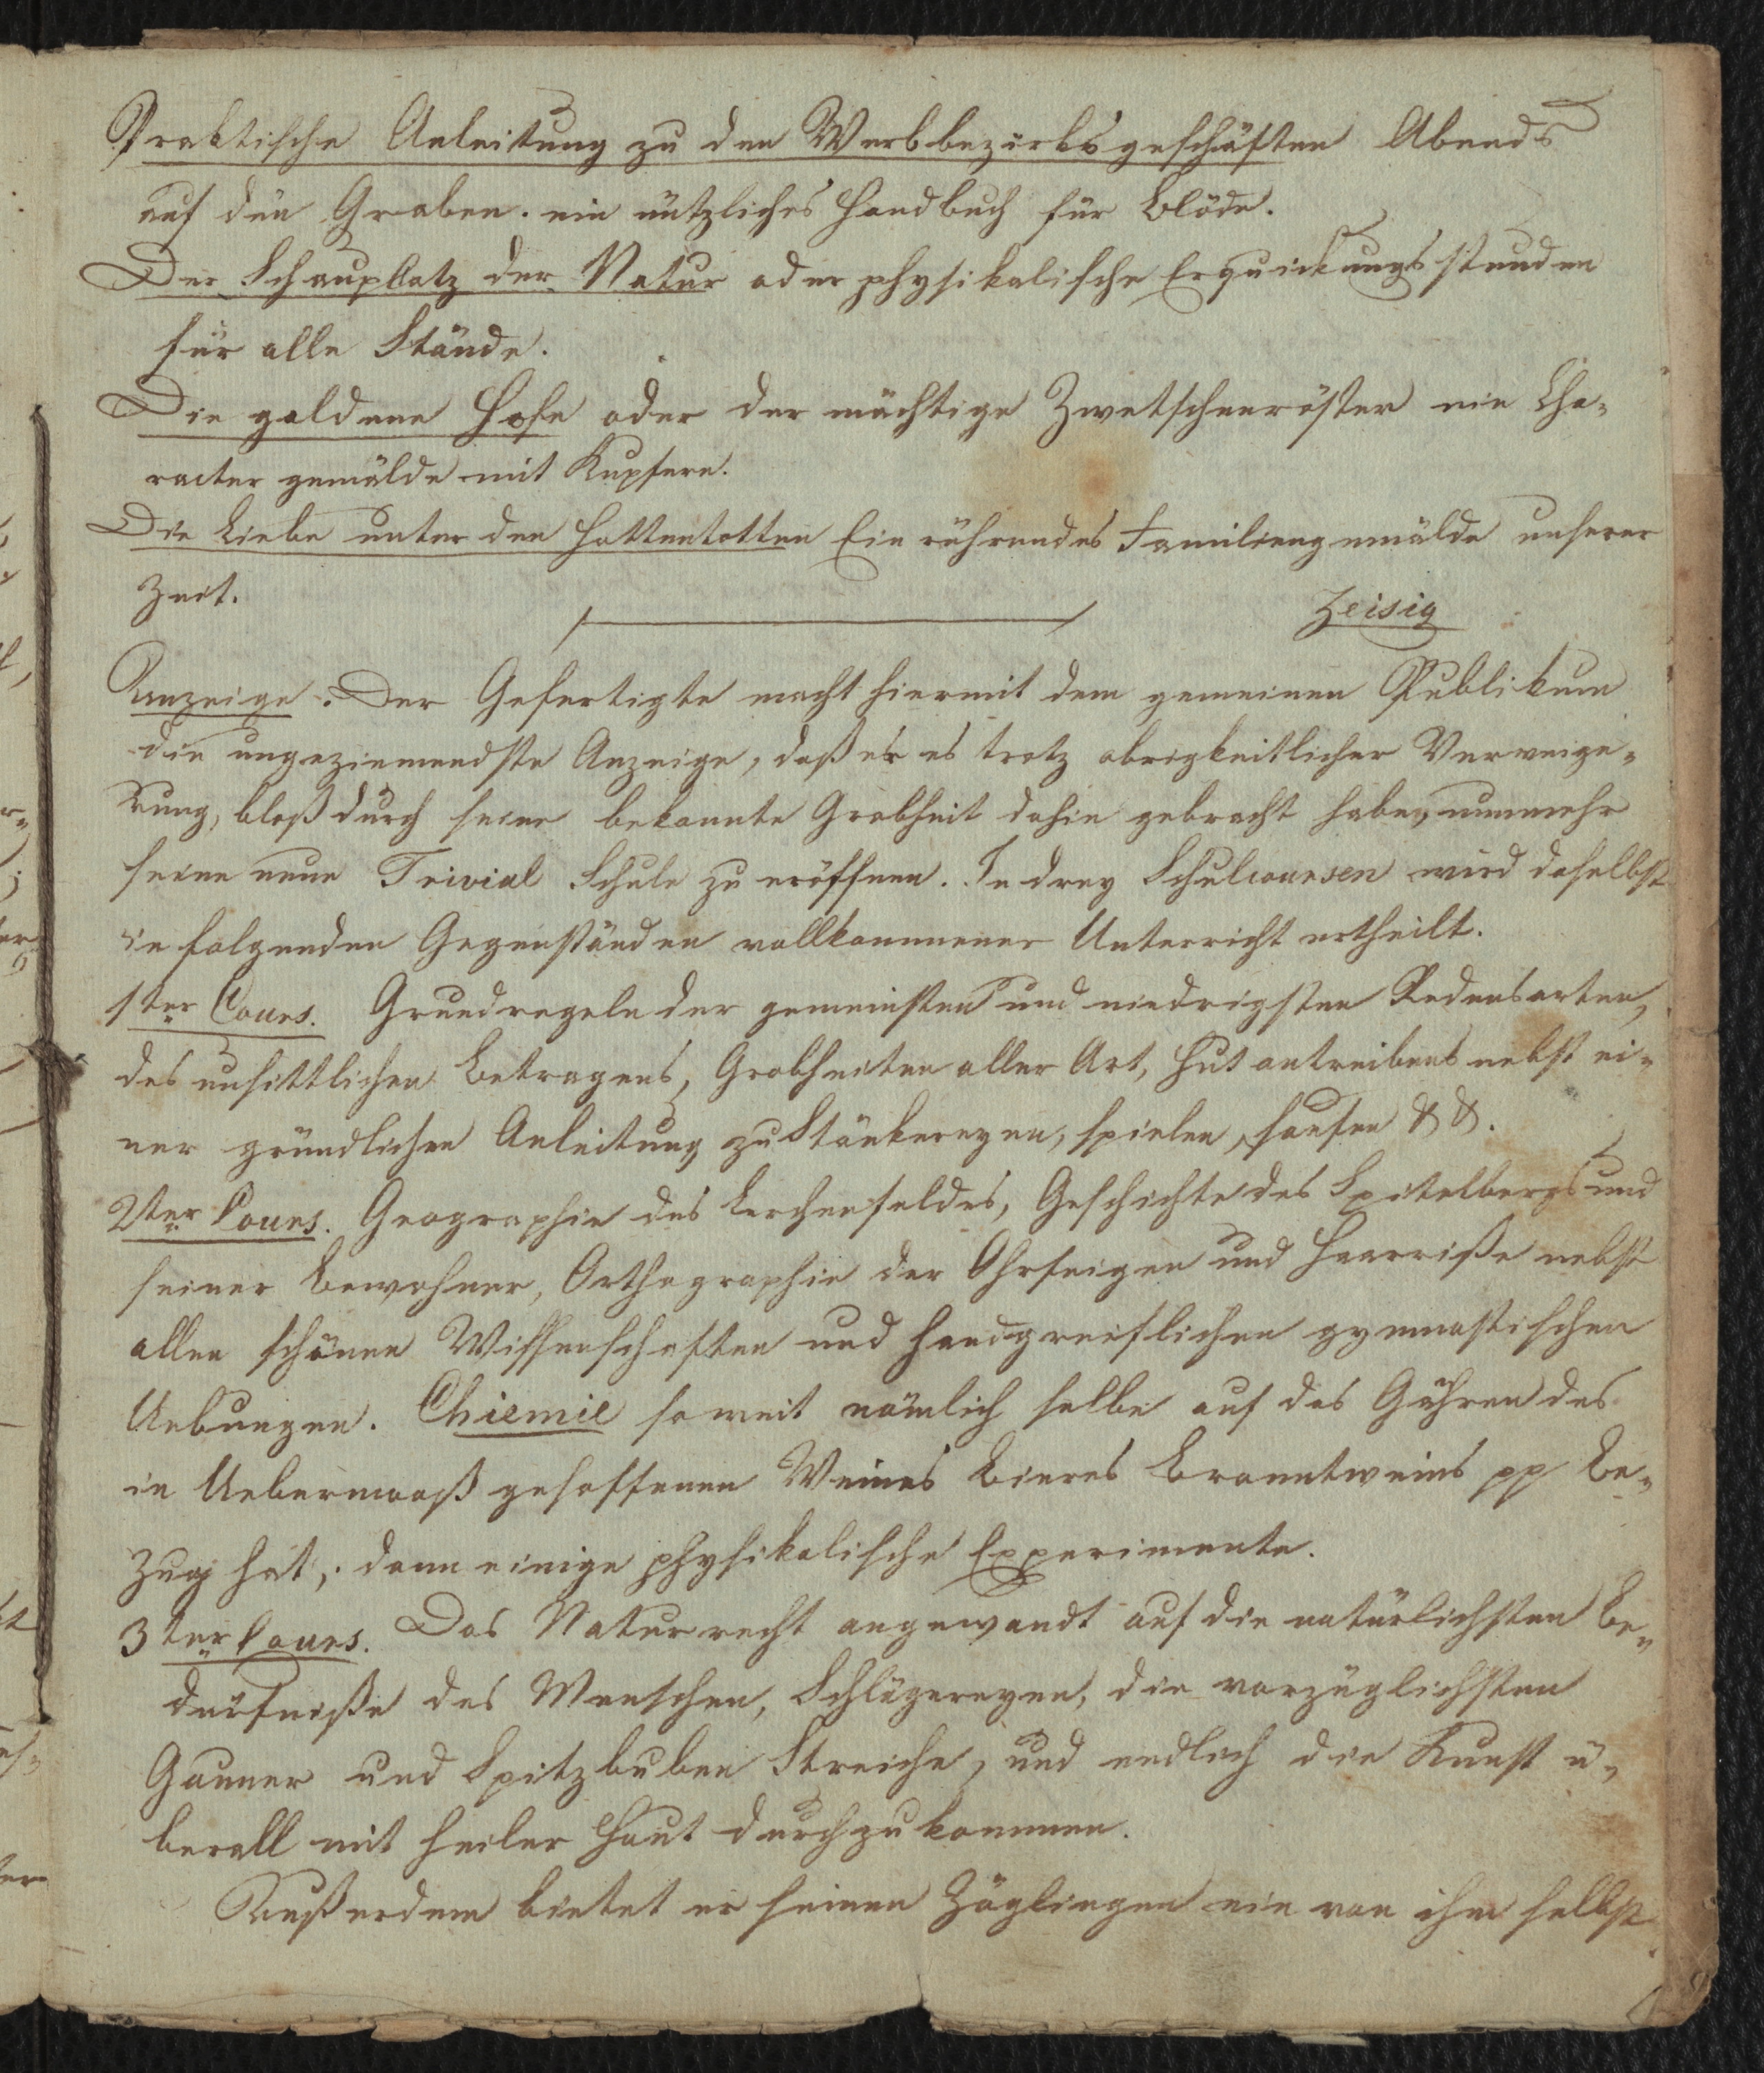 Praktische Anleitung zu den Werbbezirksgeschäften Abends
auf den Graben. ein nützliches Handbuch für Blöde.
Der Schauplatz der Natur oder physikalische Erquickungsstunden
für alle Stände.
Die goldene Hose oder der mächtige Zwetschenröster ein Cha-
racter gemälde mit Kupfern.
Die Liebe unter den Hottentotten Ein rührendes Familiengemälde unserer
Zeit.
Zeisig
Anzeige. Der Gefertigte macht hiermit dem gemeinen Publikum
die ungeziemendste Anzeige, daß er es trotz obrigkeitlicher Verweige-
rung, bloß durch seine bekannte Grobheit dahin gebracht habe, nunmehr
seine neue Trivial Schule zu eröffnen. In drey Schulcoursen wird daselbst
in folgenden Gegenständen vollkommener Unterricht ertheilt.
1ter Cours. Grundregeln der gemeinsten und niedrigsten Redensarten,
des unsittlichen Betragens, Grobheiten aller Art, Hut antreibens nebst ei-
ner gründlichen Anleitung zu Stänkereyen, spielen, saufen & &.
2ter Cours. Geographie des Lerchenfeldes, Geschichte des Spitelbergs und
seiner Bewohner, Orthographie der Ohrfeigen und Haarriße nebst
allen schönen Wissenschaften und handgreiflichen gymnastischen
Uebungen. Chiemie soweit nämlich selbe auf das Gähren des
in Uebermaaß gesoffenen Weines Bieres Branntweins pp Be-
zug hat, dann einige physikalische Experimente.
3ter Cours. Das Naturrecht angewandt auf die natürlichsten Be-
dürfniße des Menschen, Schlägereyen, die vorzüglichsten
Gauner und Spitzbuben Streiche, und endlich die Kunst ü-
berall mit heiler Haut durchzukommen.
Außerdem bietet er seinen Zöglingen ein von ihm selbst